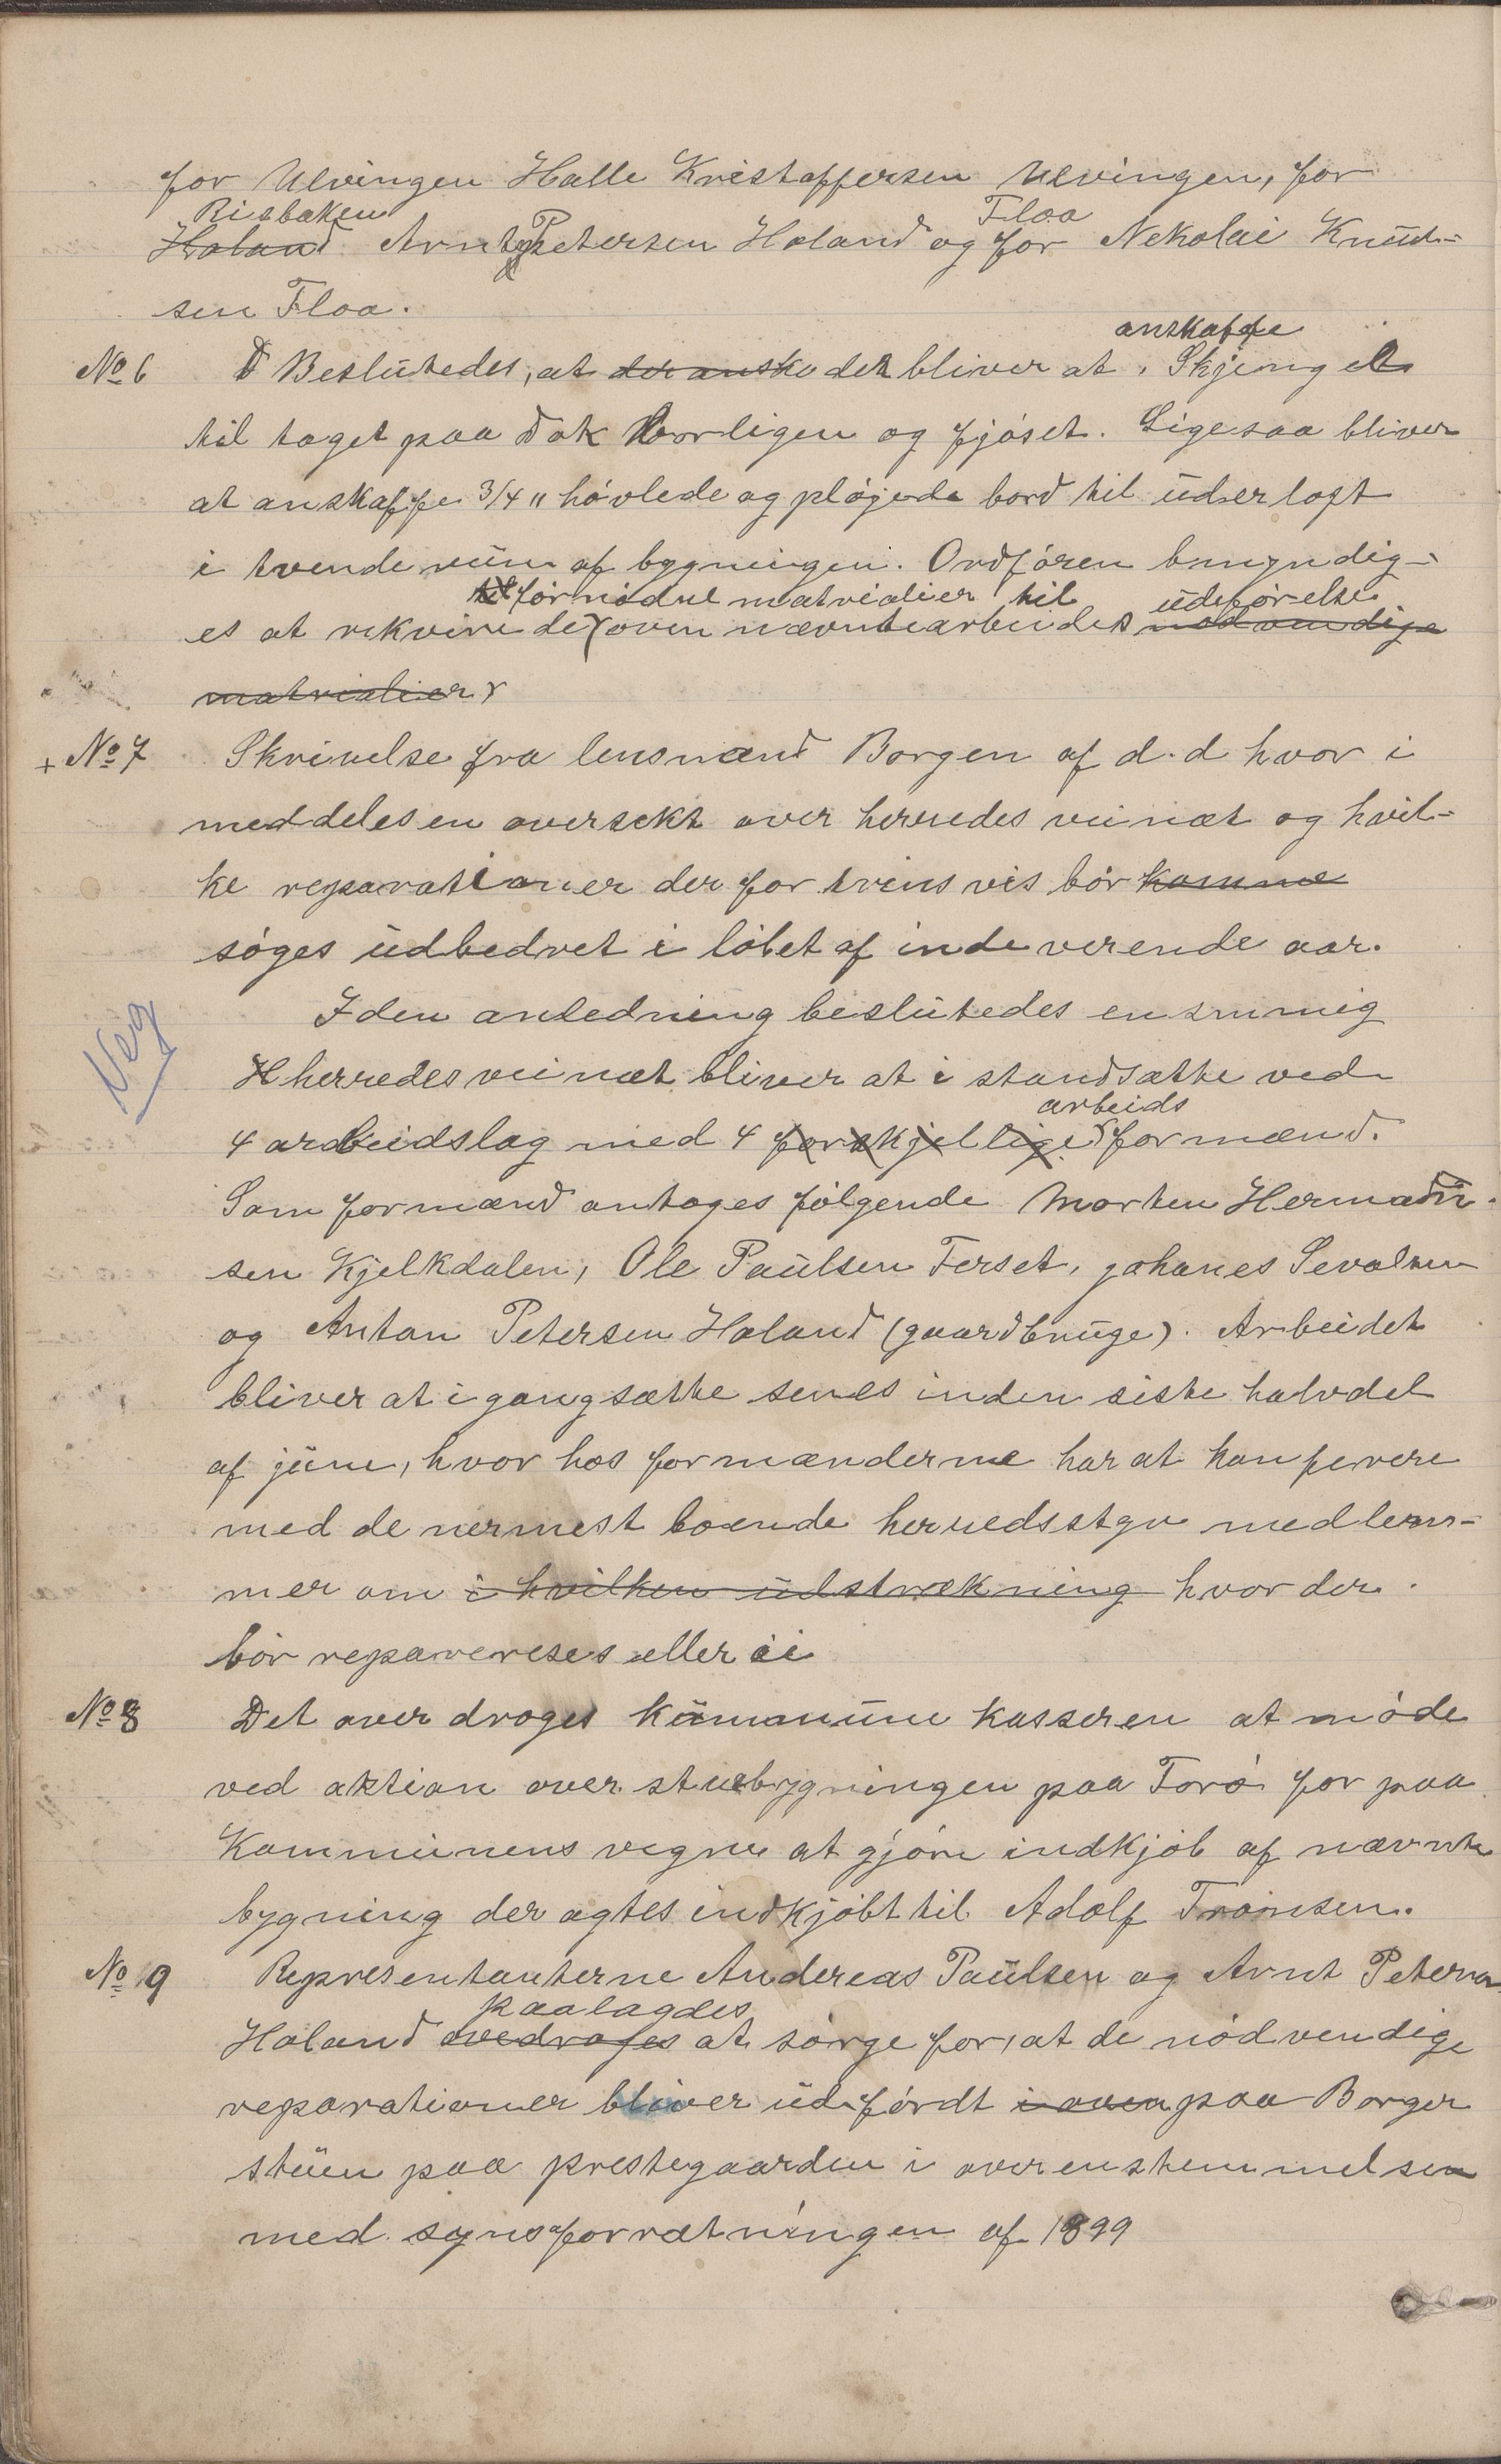 for Ulvingen Halle Kristoffersen Ulvingen, for
Risbaken Floa
Holand Arnt Petersen Holand og for Nekolai Knud-
sen Floa.
anskaffe
No 6 Beslutedes, at der anska det bliver at Skjengel
til taget paa Dok borligen og fjøset. Ligesaa bliver
at anskaffe 3/4 " høvlede og pløjede bord til underloft
i tvende rum af bygningen. Ordføren bemyndig-
fornødne matrialier til udførelse
es at rekvirere de oven nævnte arbeides nødvendige
matrialier
+ No 7 Skrivelse fra lensmand Borgen af d.d hvor i
meddeles en oversekt over herredes veinæt og hvil-
ke reparationer der fortrinsvis bør komme
søges udbedret i løbet af indeverende aar.
Veg
I den anledning beslutedes enstmmig
herredes veinæt bliver at i standsætte ved
arbeids
4 arbeidslag med 4 forskjellige formænd.
Som formænd antoges følgende Morten Hermann-
sen Kjelkdalen, Ole Paulsen Ferset, johanes Sevalsen
og Antan Petersen Holand (gaardbruge). Arbeidet
bliver at i gangsætte senes inden siste halvdel
af june, hvor hos formænderne har at konferere
med de nermest boende herredsstyr medlem-
mer om i hvilken udstrækning hvor der
bør reparereses eller ei
No 8 Det over droges kummune kasseren at møde
ved aktion over stuebygningen paa Torø for paa
Kommunens vegne at gjøre indkjøb af nævnte
bygning der agtes indkjøbt til Adolf Tronsen.
No 9 Representanterne Andereas Paulsen og Arnt Petersen
paalagdes
Holand overdroges at sørge for, at de nødvendige
reparationer bliver udførdt i oven paa Borger
stuen paa prestegaarden i overenstemmelsen
med synsforrætningen af 1899